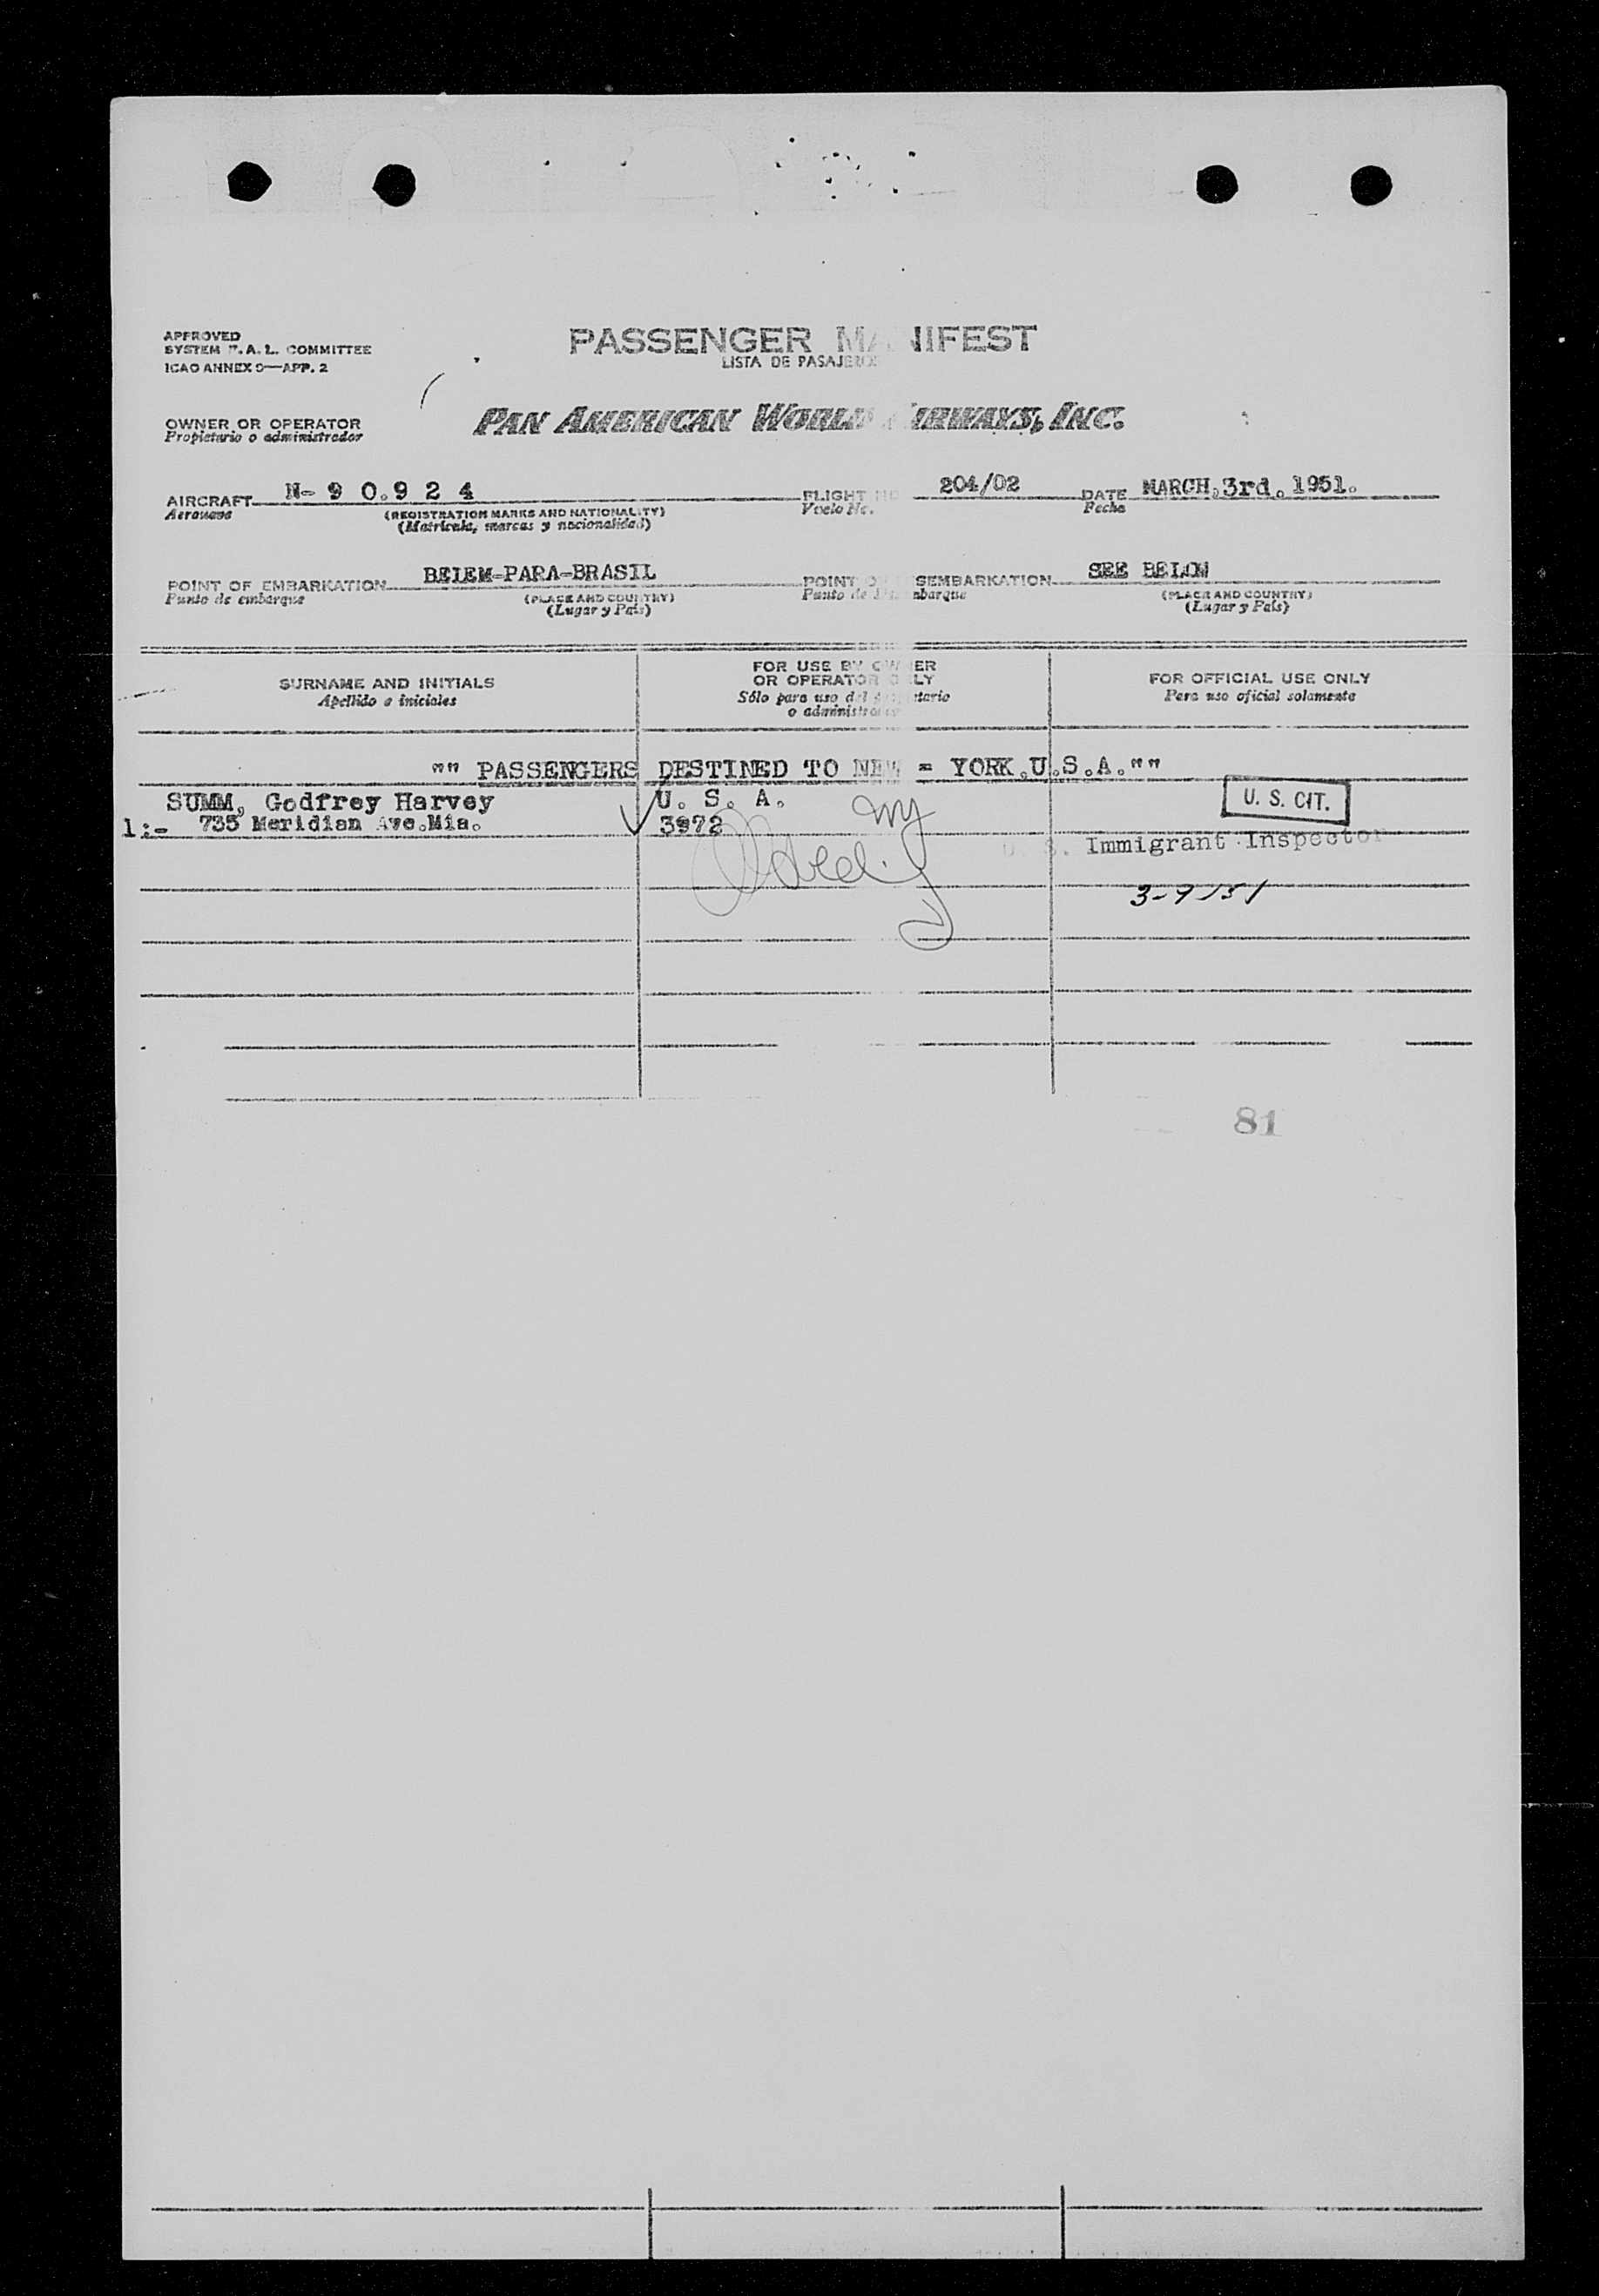 APPROVED
SYSTEM F.A.L. COMMITTEE
ICAO ANNEX 9—APP. 2
PASSENGER MANIFEST
LISTA DE PASAJEROS
OWNER OR OPERATOR
Propietario o administrador
PAN AMERICAN WORLD AIRWAYS, INC.
AIRCRAFT N- 9 0.9 2 4 FLIGHT NO 204/02 DATE MARCH,3rd.1951.
Aeronave (REGISTRATION MARKS AND NATIONALITY) Vuelo No. Fecha
(Matricula, marcas y nacionalidad)
POINT OF EMBARKATION BELEM-PARA-BRASIL POINT OF DISEMBARKATION SEE BELOW
Punto de embarque (PLACE AND COUNTRY) Punto de Desembarque (PLACE AND COUNTRY)
(Lugar y País) (Lugar y País)
SURNAME AND INITIALS
Apellido e iniciales
FOR USE BY OWNER
OR OPERATOR ONLY
Sólo para uso del propietario
o administrador
FOR OFFICIAL USE ONLY
Para uso oficial solamente
"" PASSENGERS DESTINED TO NEW = YORK.U.S.A.""
SUMM, Godfrey Harvey U. S. A. U. S. CIT.
1:- 735 Meridian Ave.Mia. 3972
U. S. Immigrant Inspector
3-9-51
81